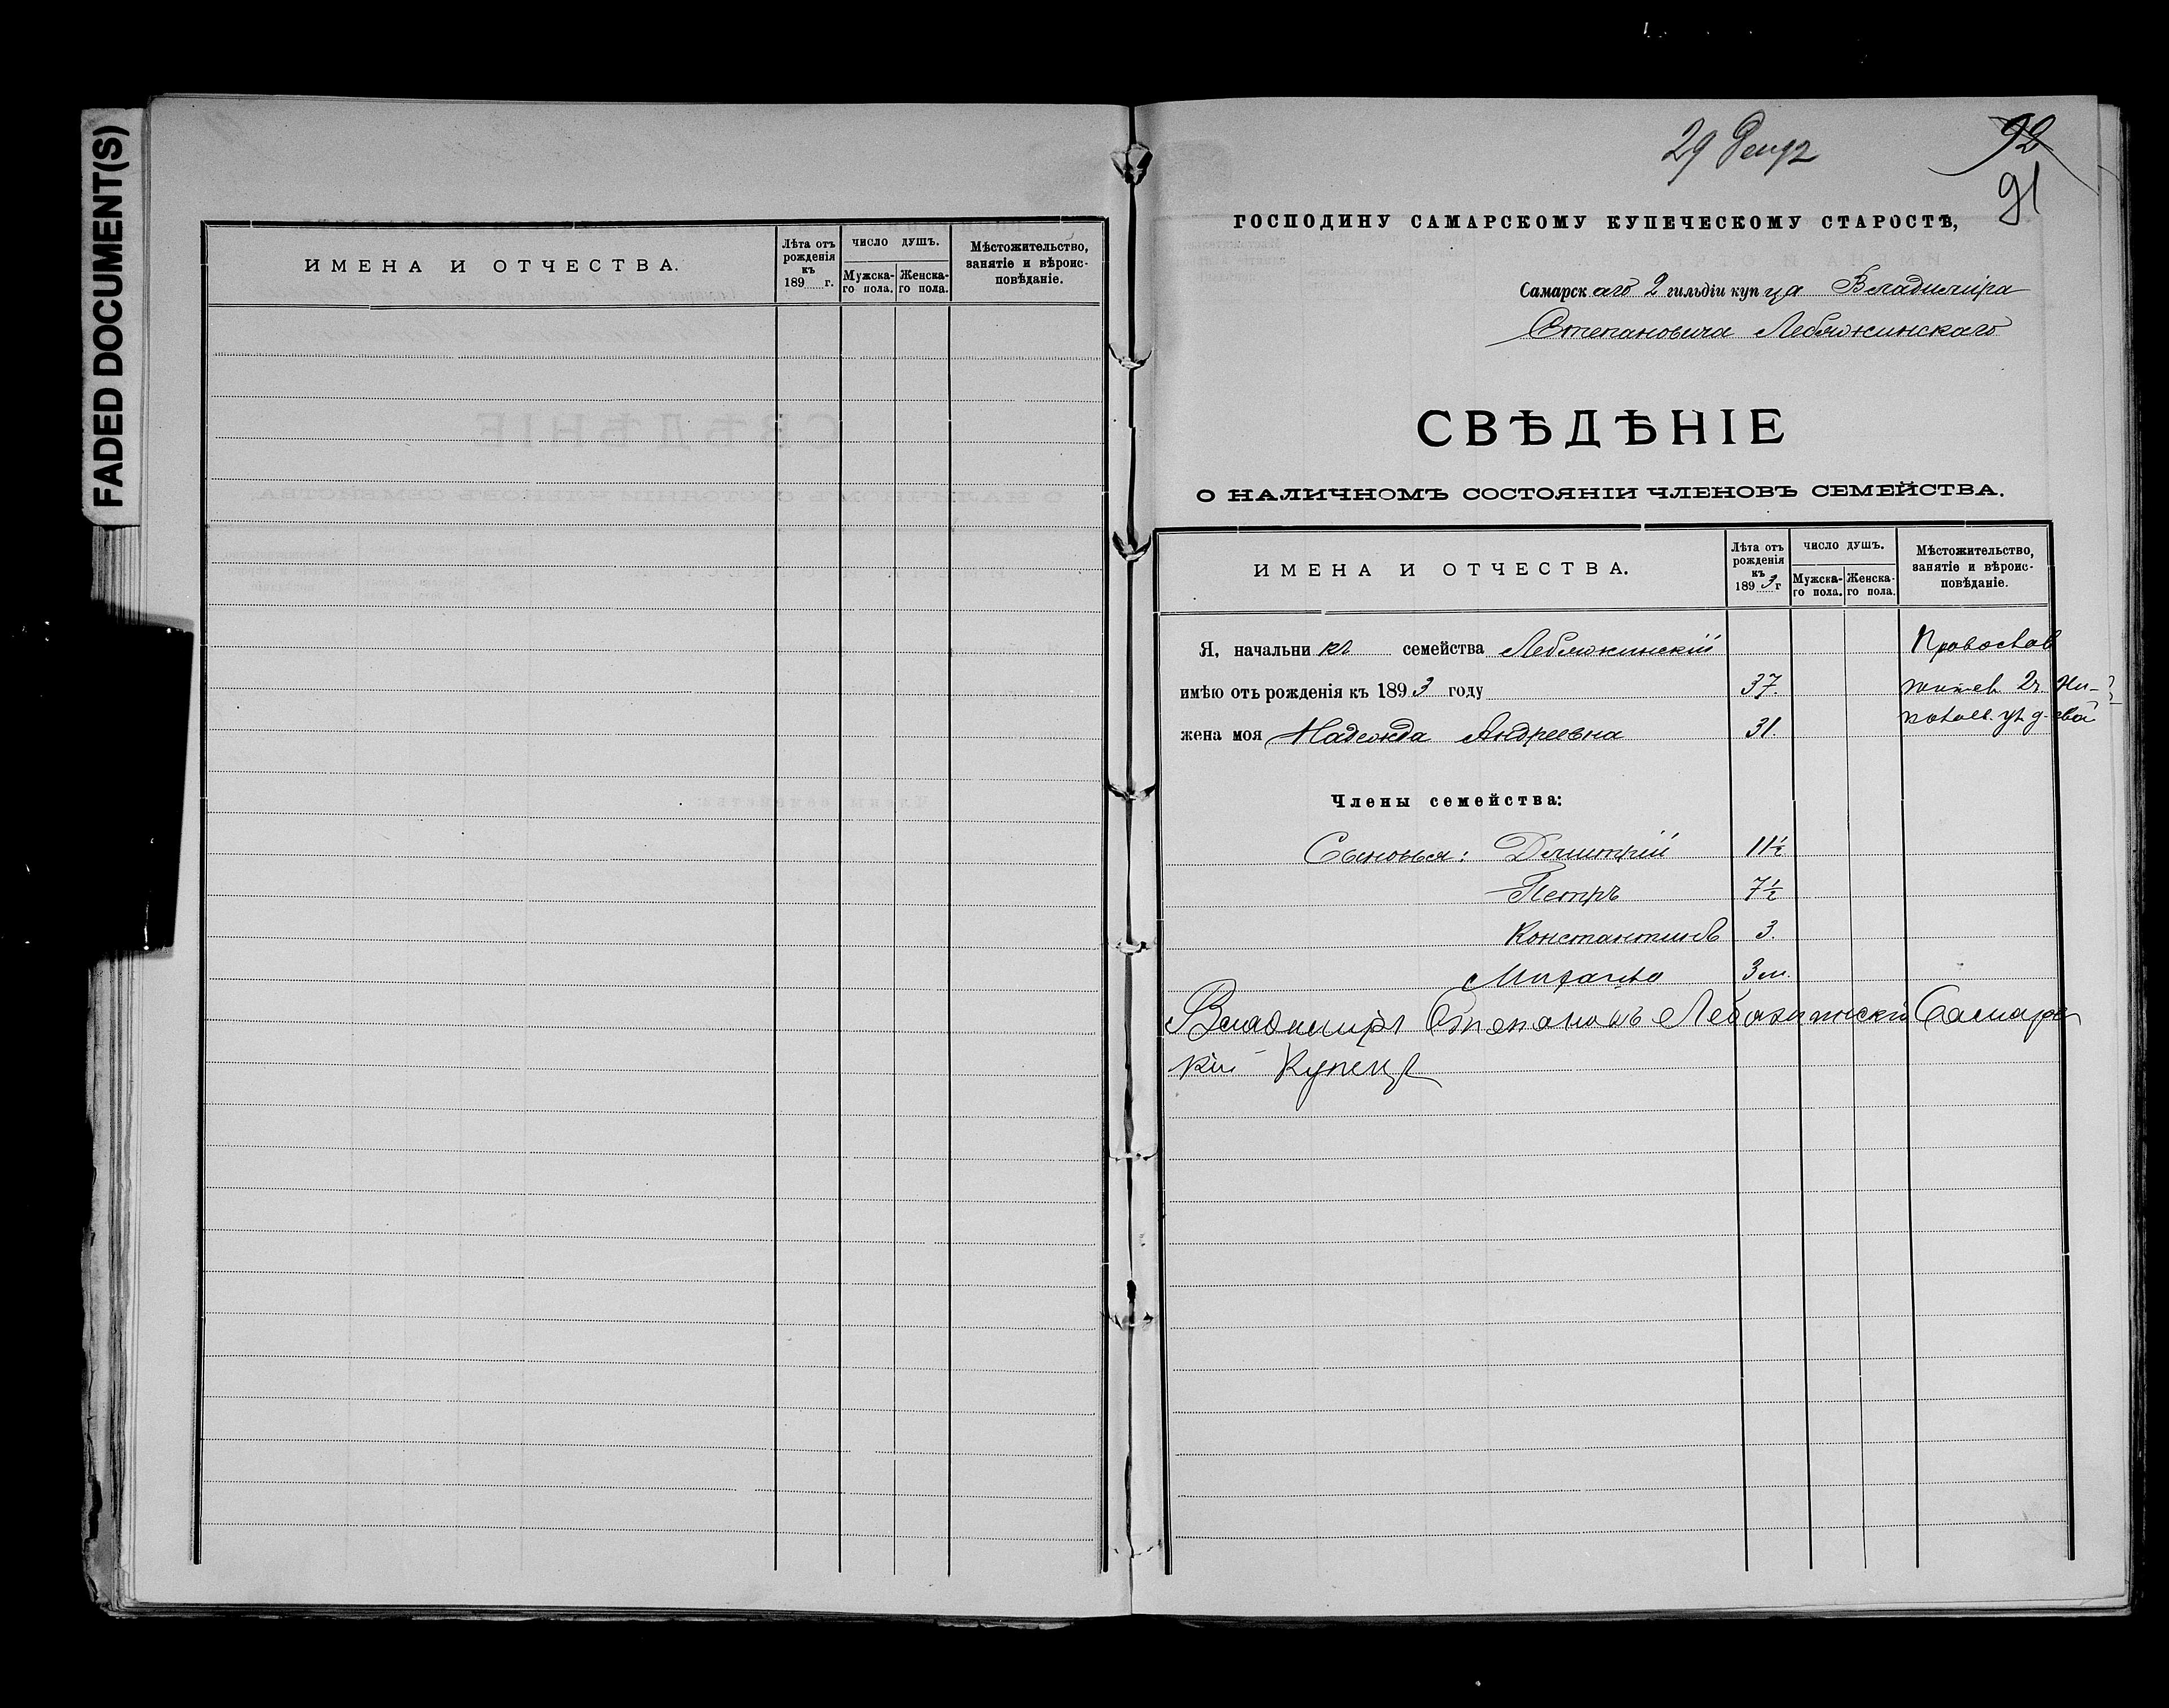 FADED DOCUMENT(S)
ИМЕНА И ОТЧЕСТВА.
Лѣта отъ рожденія къ 189 г.
ЧИСЛО ДУШЪ.
Мужска-го пола.
Женска-го пола.
Мѣстожительство, занятіе и вѣроис-повѣданіе.
29 Декр
92
91
ГОСПОДИНУ САМАРСКОМУ КУПЕЧЕСКОМУ СТАРОСТѢ,
Самарскаго 2 гильдіи купца Владиміра
Степановича Лебяжинскаго
СВѢДѢНІЕ
О НАЛИЧНОМЪ СОСТОЯНІИ ЧЛЕНОВЪ СЕМЕЙСТВА.
ИМЕНА И ОТЧЕСТВА.
Лѣта отъ рожденія къ 1893 г
ЧИСЛО ДУШЪ.
Мужска-го пола.
Женска-го пола.
Мѣстожительство, занятіе и вѣроис-повѣданіе.
Я, начальникъ семейства Лебяжинскій Православ
имѣю отъ рожденія къ 1893 году 37. жител. 2 ч. Ни-
жена моя Надежда Андреевна 31. колаев. ул. д. свой
Члены семейства:
Сыновья: Дмитрій 11½
Петръ 7½
Константинъ 3.
Михаилъ 3 м.
Владиміръ Степановъ Лебяжинскій Самарс
кій Купецъ